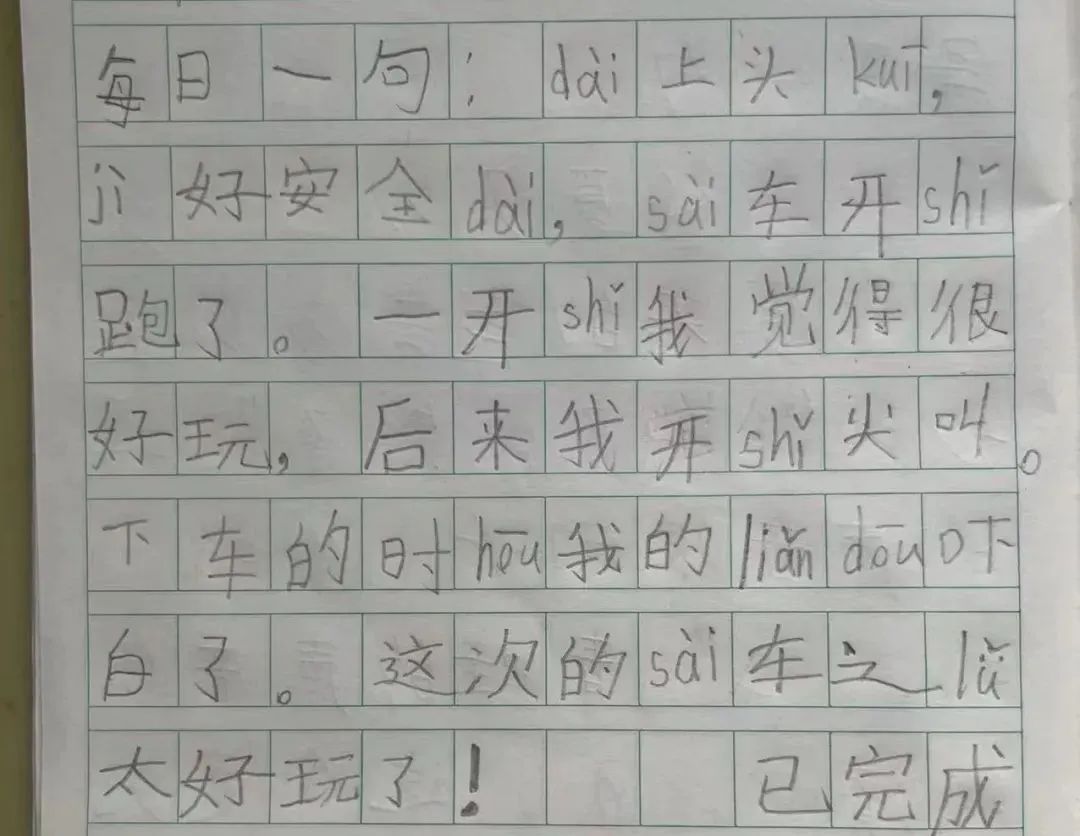 每日一句：dài上头kuī，
jì好安全dài，sài车开shǐ
跑了。一开shǐ我觉得很
好玩，后来我开shǐ尖叫。
下车的时hōu我的liǎn dōu吓
白了。这次的sài车之lǚ
太好玩了！ 已完成